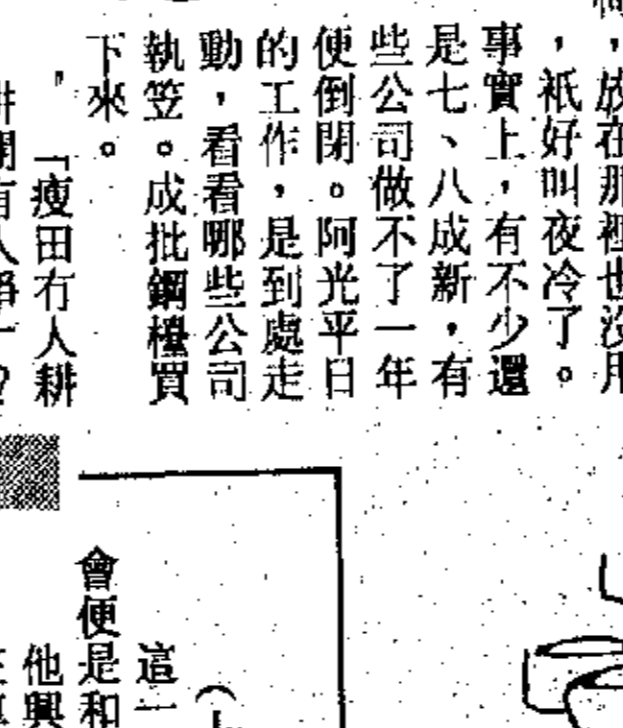 ，放在那裡也沒用
，祇好叫夜冷了。
事實上，有不少還
是七、八成新，有
些公司做不了一年
便倒閉。阿光平日
的工作，是到處走
動，看看哪些公司
執笠。成批鋼檯買
下來。
「瘦田冇人耕
，耕開有人爭」？
這一
會便是和
他興